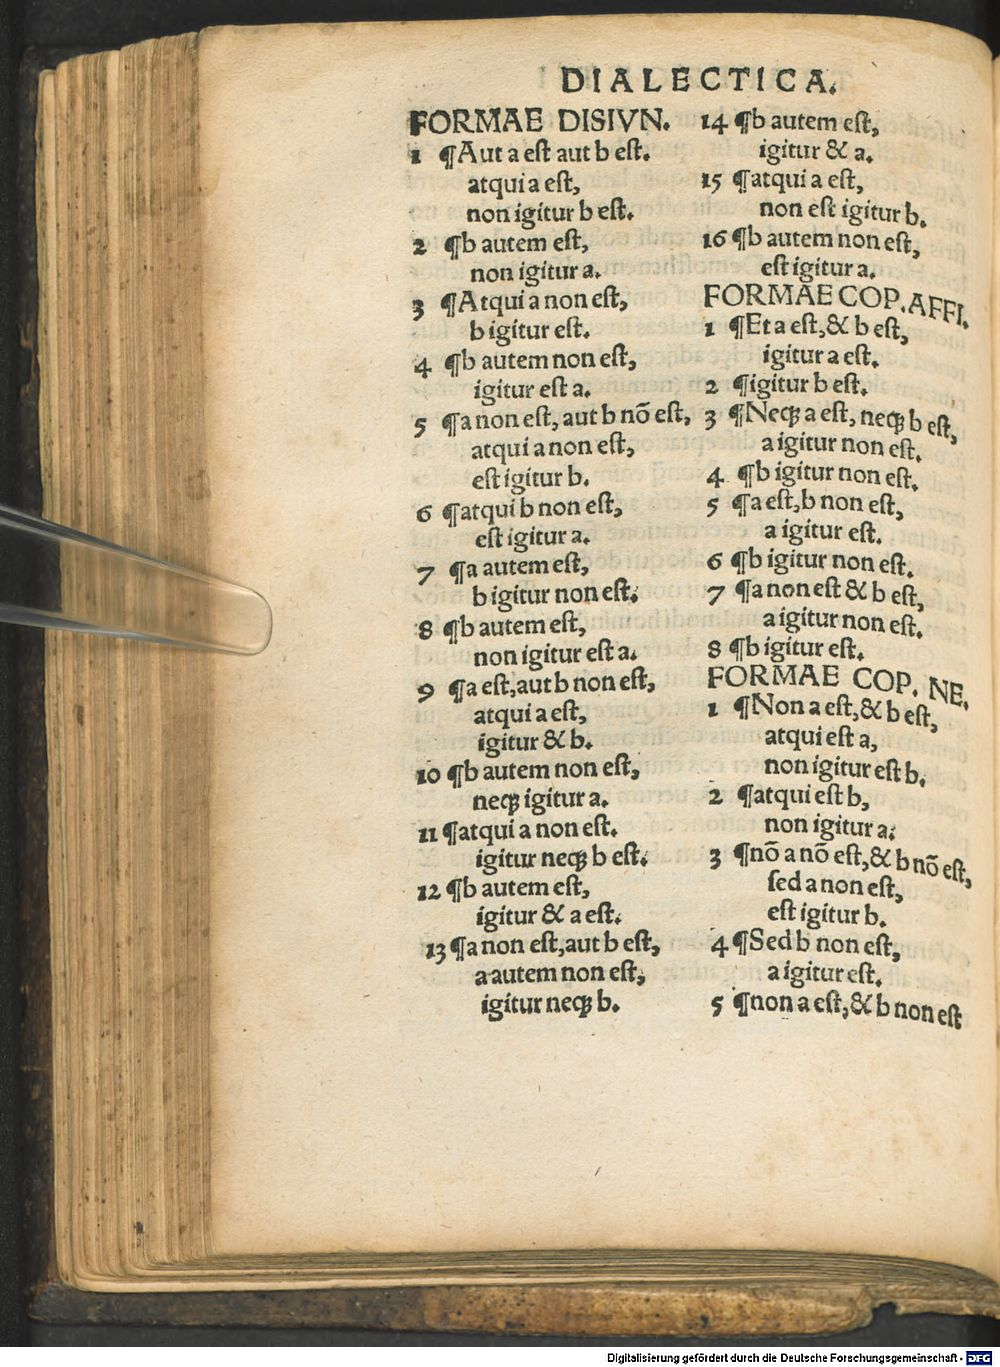 DIALECTICA.
FORMAE DISIVN.
1 ¶Aut a est aut b est.
atqui a est,
non igitur b est.
2 ¶b autem est,
non igitur a.
3 ¶Atqui a non est,
b igitur est.
4 ¶b autem non est,
igitur est a.
5 ¶a non est, aut b nõ est,
atqui a non est,
est igitur b.
6 ¶atqui b non est,
est igitur a.
7 ¶a autem est,
b igitur non est.
8 ¶b autem est,
non igitur est a.
9 ¶a est, aut b non est,
atqui a est,
igitur & b.
10 ¶b autem non est,
neqꝫ igitur a.
11 ¶atqui a non est.
igitur neqꝫ b est.
12 ¶b autem est,
igitur & a est.
13 ¶a non est, aut b est,
a autem non est,
igitur neqꝫ b.
14 ¶b autem est,
igitur & a.
15 ¶atqui a est,
non est igitur b.
16 ¶b autem non est,
est igitur a.
FORMAE COP. AFFI.
1 ¶Et a est, & b est,
igitur a est.
2 ¶igitur b est.
3 ¶Neqꝫ a est, neqꝫ b est,
a igitur non est.
4 ¶b igitur non est.
5 ¶a est, b non est,
a igitur est.
6 ¶b igitur non est.
7 ¶a non est & b est,
a igitur non est.
8 ¶b igitur est.
FORMAE COP. NE.
1 ¶Non a est, & b est,
atqui est a,
non igitur est b.
2 ¶atqui est b,
non igitur a.
3 ¶nõ a nõ est, & b nõ est,
sed a non est,
est igitur b.
4 ¶Sed b non est,
a igitur est.
5 ¶non a est, & b non est
Digitalisierung gefördert durch die Deutsche Forschungsgemeinschaft - DFG